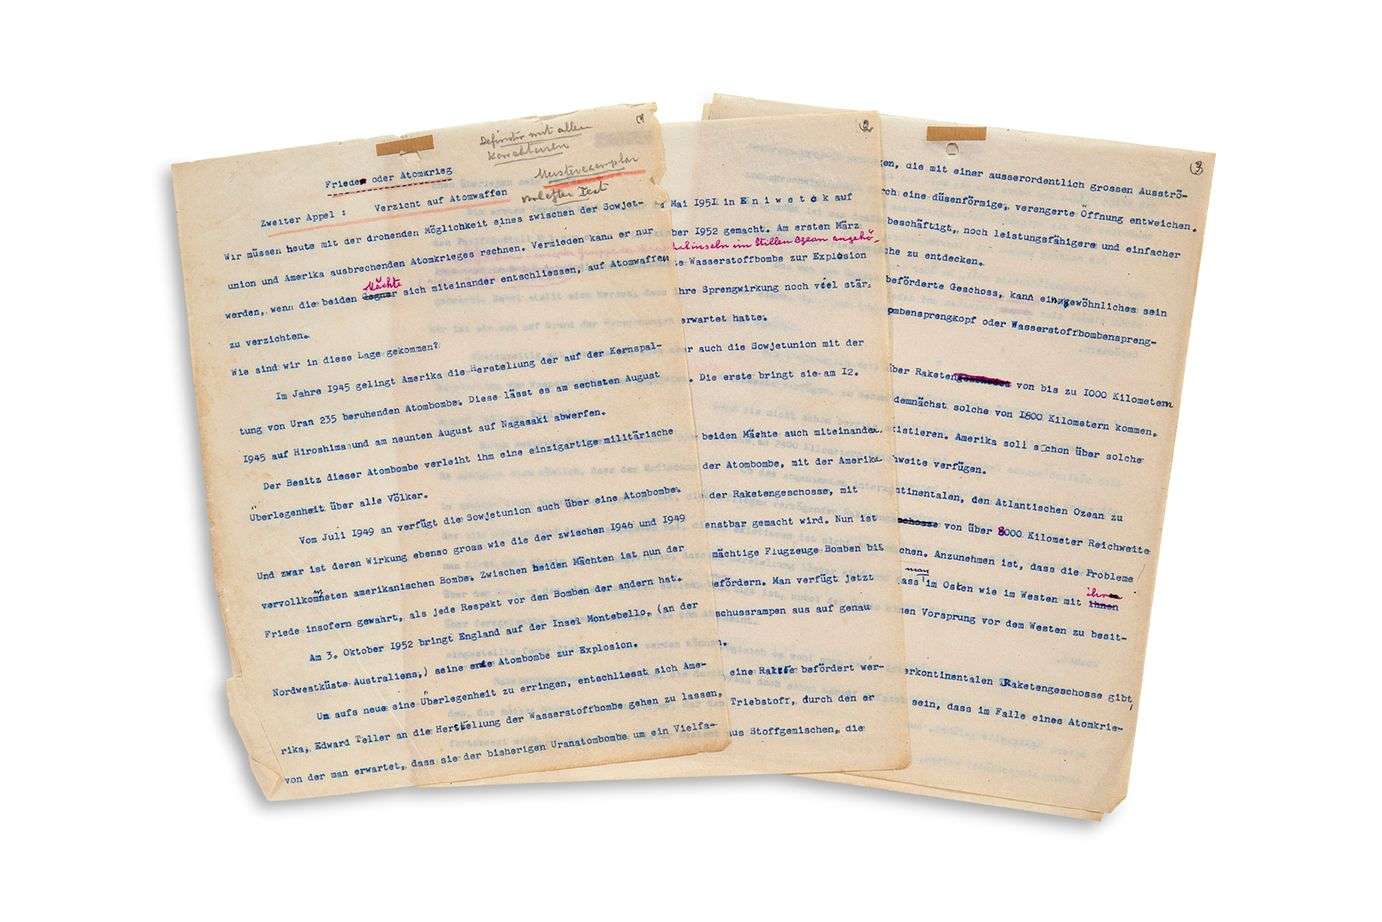 1
Definitiv mit allen
Korrekturen
Meisterexemplar
Frieden oder Atomkrieg
Zweiter Appel : Verzicht auf Atomwaffen
Wir müssen heute mit der drohenden Möglichkeit eines zwischen der Sowjet-
union und Amerika ausbrechenden Atomkrieges rechnen. Vermieden kann er nur
Mächte
werden, wenn die beiden sich miteinander entschliessen, auf Atomwaffen
zu verzichten.
Wie sind wir in diese Lage gekommen?
Im Jahre 1945 gelingt Amerika die Herstellung der auf der Kernspal-
tung von Uran 235 beruhenden Atombombe. Diese lässt es am sechsten August
1945 auf Hiroshima und am neunten August auf Nagasaki abwerfen.
Der Besitz dieser Atombombe verleiht ihm eine einzigartige militärische
Überlegenheit über alle Völker.
Vom Juli 1949 an verfügt die Sowjetunion auch über eine Atombombe.
Und zwar ist deren Wirkung ebenso gross wie die der zwischen 1946 und 1949
vervollkommneten amerikanischen Bombe. Zwischen beiden Mächten ist nun der
Friede insofern gewahrt, als jede Respekt vor den Bomben der andern hat.
Am 3. Oktober 1952 bringt England auf der Insel Montebello, (an der
Nordwestküste Australiens,) seine erste Atombombe zur Explosion.
Um aufs neue eine Überlegenheit zu erringen, entschliesst sich Ame-
rika, Edward Teller an die Herstellung der Wasserstoffbombe gehen zu lassen,
von der man erwartet, dass sie der bisherigen Uranatombombe um ein Vielfa-
2
Mai 1951 in Eniwetok auf
ber 1952 gemacht. Am ersten März
inseln im Stillen Ozean angehö-
te Wasserstoffbombe zur Explosion
hre Sprengwirkung noch viel stär-
erwartet hatte.
er auch die Sowjetunion mit der
. Die erste bringt sie am 12.
beiden Mächte auch miteinander
der Atombombe, mit der Amerika
der Raketengeschosse, mit
enstbar gemacht wird. Nun ist
mächtige Flugzeuge Bomben bis
efördern. Man verfügt jetzt
schussrampen aus auf genau
n.
eine Rakete befördert wer-
Triebstoff, durch den er
us Stoffgemischen, die
3
en, die mit einer ausserordentlich grossen Ausströ-
rch eine düsenförmige, verengerte Öffnung entweichen.
beschäftigt, noch leistungsfähigere und einfacher
che zu entdecken.
beförderte Geschoss, kann ein gewöhnliches sein
ombensprengkopf oder Wasserstoffbombenspreng-
über Raketen von bis zu 1000 Kilometern
demnächst solche von 1800 Kilometern kommen.
xistieren. Amerika soll schon über solche
hweite verfügen.
ntinentalen, den Atlantischen Ozean zu
schosse von über 8000 Kilometer Reichweite
chen. Anzunehmen ist, dass die Probleme
man ihren
ass im Osten wie im Westen mit ihnen
nen Vorsprung vor dem Westen zu besit-
erkontinentalen Raketengeschosse gibt,
sein, dass im Falle eines Atomkrie-